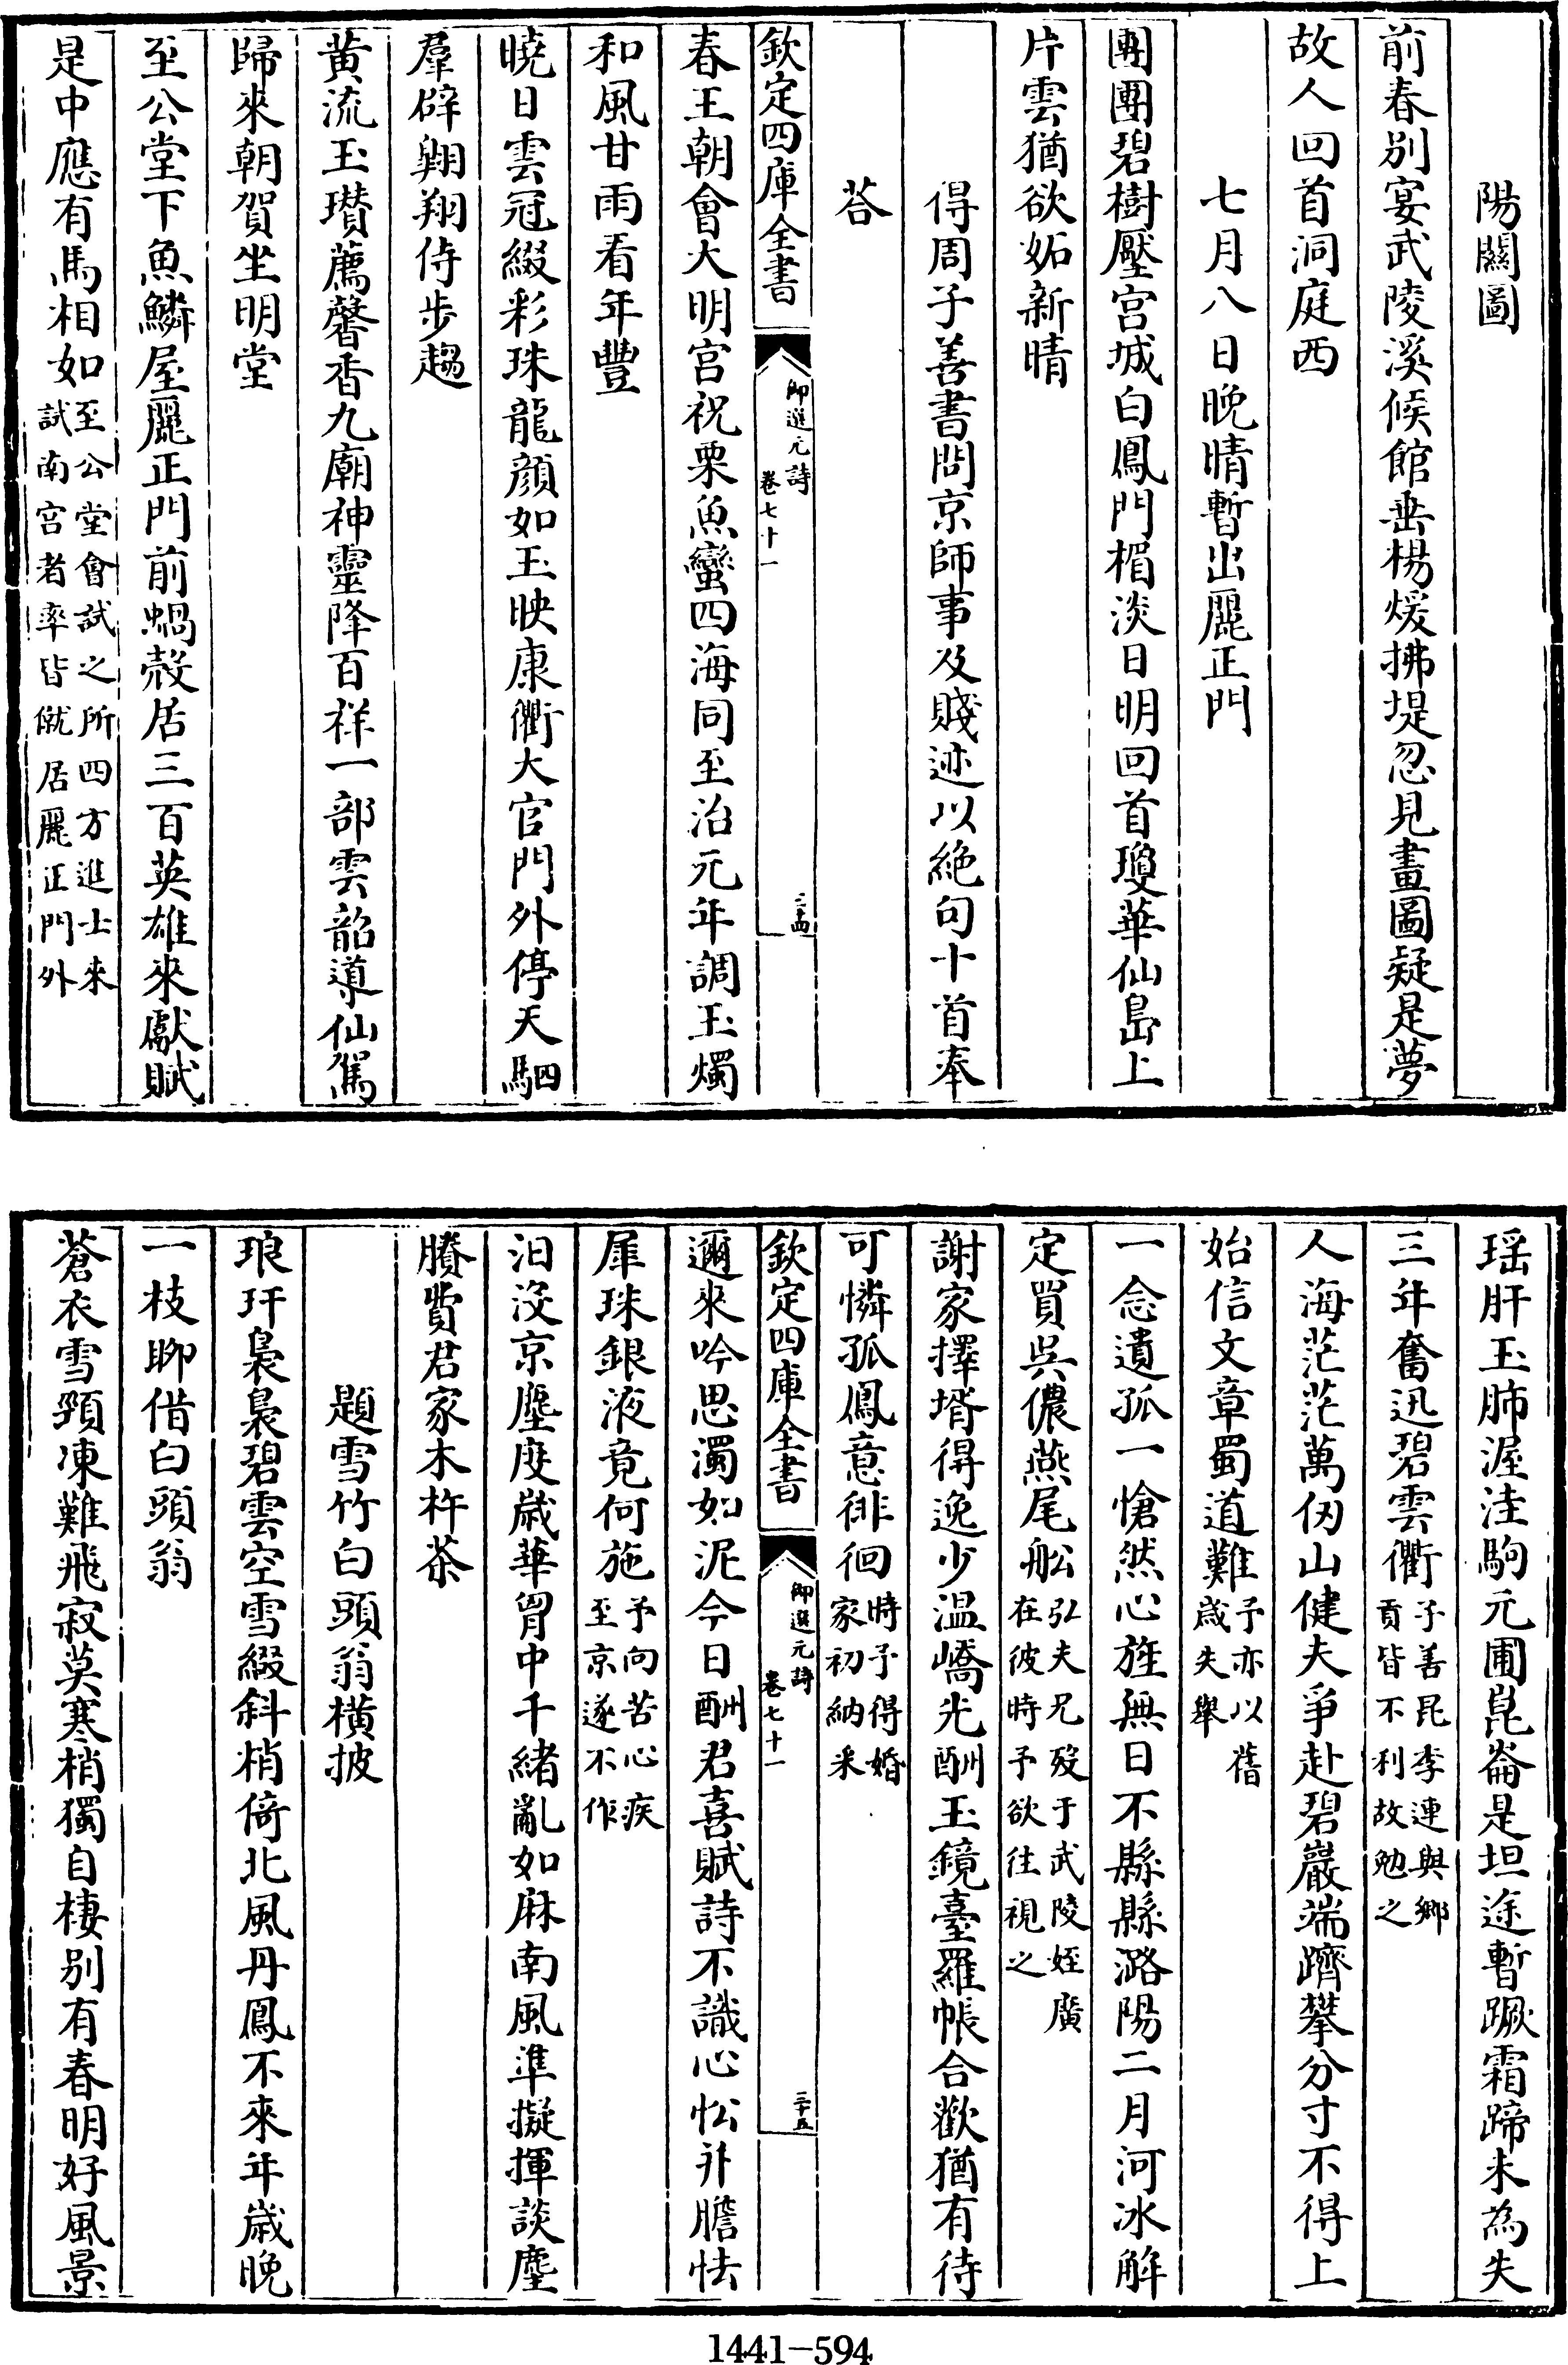 陽關圖
前春别宴武陵溪候館垂楊煖拂堤忽見畫圖疑是夢
故人回首洞庭西
七月八日晚晴暫出麗正門
團團碧樹壓宫城白鳳門楣淡日明回首瓊華仙島上
片雲猶欲妬新晴
得周子善書問京師事及賤迹以絶句十首奉
荅
欽定四庫全書
御選元詩
卷七十一
二十四
春王朝會大明宫祝栗魚蠻四海同至治元年調玉燭
和風甘雨看年豐
曉日雲冠綴彩珠龍顔如玉映康衢大官門外停天駟
羣辟翺翔侍步趨
黄流玉瓚薦馨香九廟神靈降百祥一部雲韶導仙駕
歸來朝賀坐明堂
至公堂下魚鱗屋麗正門前蝸殼居三百英雄來獻賦
是中應有馬相如至公堂會試之所四方進士來
試南宫者率皆僦居麗正門外
瑶肝玉肺渥洼駒元圃崑崙是坦途暫蹶霜蹄未為失
三年奮迅碧雲衢子善昆季連與鄉
貢皆不利故勉之
人海茫茫萬仞山健夫爭赴碧巖端躋攀分寸不得上
始信文章蜀道難予亦以舊
歲失舉
一念遺孤一愴然心旌無日不縣縣潞陽二月河冰解
定買吳儂燕尾舩弘夫兄殁于武陵姪廣
在彼時予欲往視之
謝家擇壻得逸少温嶠光酬玉鏡臺羅帳合歡猶有待
可憐孤鳳意徘徊時予得婚
家初納采
欽定四庫全書
御選元詩
卷七十一
二十五
邇來吟思濁如泥今日酬君喜賦詩不識心忪并膽怯
犀珠銀液竟何施予向苦心疾
至京遂不作
汨没京塵度歲華胷中千緒亂如麻南風準擬揮談麈
賸費君家木杵茶
題雪竹白頭翁横披
琅玕裊裊碧雲空雪綴斜梢倚北風丹鳳不來年歲晚
一枝聊借白頭翁
蒼衣雪頸凍難飛寂莫寒梢獨自棲别有春明好風景
1441-594